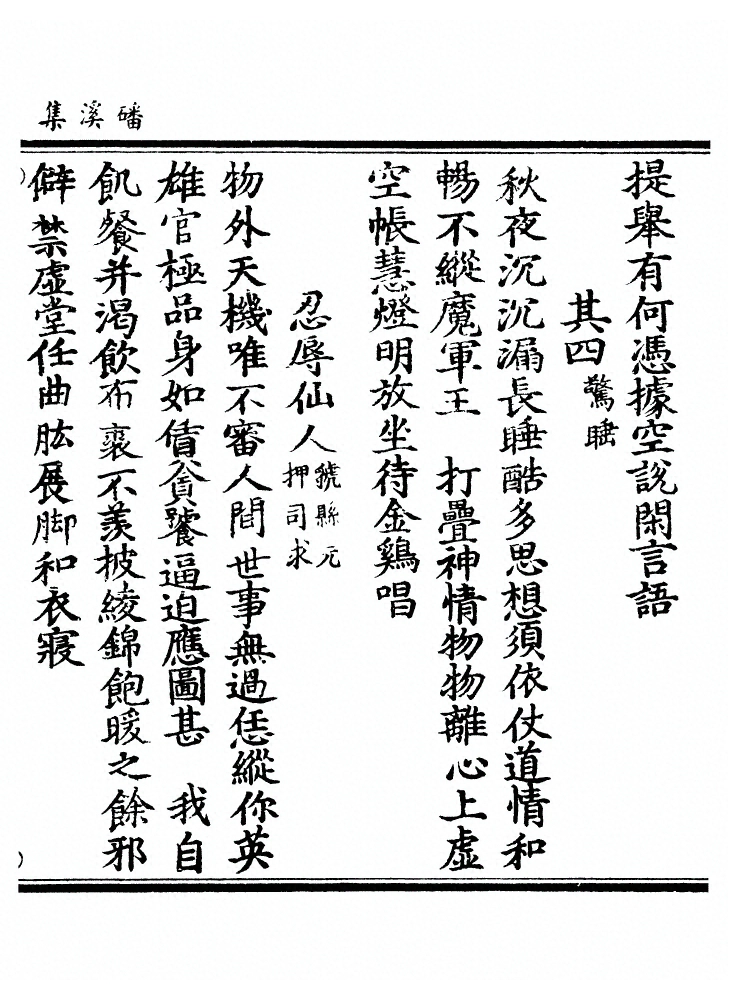 磻溪集
提舉有何憑據空說閑言語
其四驚睡
秋夜沉沉漏長睡酷多思想須依仗道情和
暢不縱魔軍王　打疊神情物物離心上虛
空帳慧燈明放坐待金鷄唱
忍辱仙人虢縣元
押司求
物外天機唯不審人間世事無過恁縱你英
雄官極品身如借貧饕逼迫應圖甚　我自
飢餐并渴飲布裘不羨披綾錦飽暖之餘邪
僻禁虛堂任曲肱展脚和衣寢